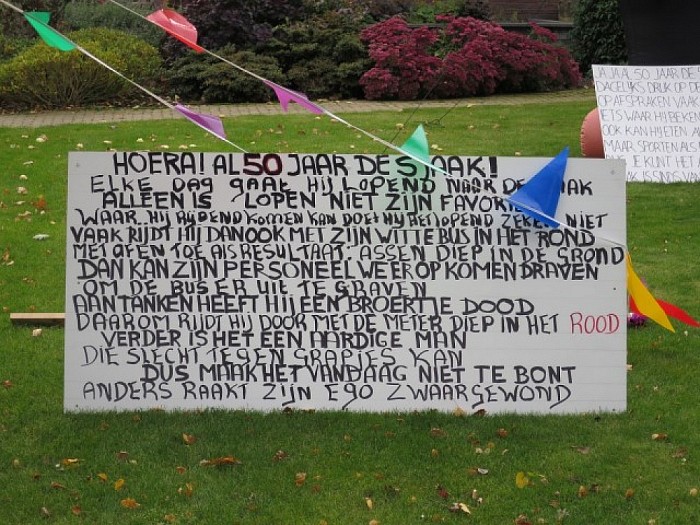 HOERA! AL 50 JAAR DE SJAAK!
ELKE DAG GAAT HIJ LOPEND NAAR DE ZAAK
ALLEEN IS LOPEN NIET ZIJN FAVORIET
WAAR HIJ RIJDEND KOMEN KAN DOET HIJ HET LOPEND ZEKER NIET
VAAK RIJDT HIJ DAN OOK MET ZIJN WITTE BUS IN HET ROND
MET AF EN TOE ALS RESULTAAT, ASSEN DIEP IN DE GROND
DAN KAN ZIJN PERSONEEL WEER OP KOMEN DRAVEN
OM DE BUS ER UIT TE GRAVEN
AAN TANKEN HEEFT HIJ EEN BROERTJE DOOD
DAAROM RIJDT HIJ DOOR MET DE METER DIEP IN HET ROOD
VERDER IS HET EEN AARDIGE MAN
DIE SLECHT TEGEN GRAPJES KAN
DUS MAAK HET VANDAAG NIET TE BONT
ANDERS RAAKT ZIJN EGO ZWAAR GEWOND
JA JA AL 50 JAAR DE
DAGELIJKS DRUK OP DE
OP AFSPRAKEN VAAK
IETS WAAR HIJ BEKEN
OOK KAN HIJ ETEN
MAAR SPORTEN ALS
JE KUNT HET